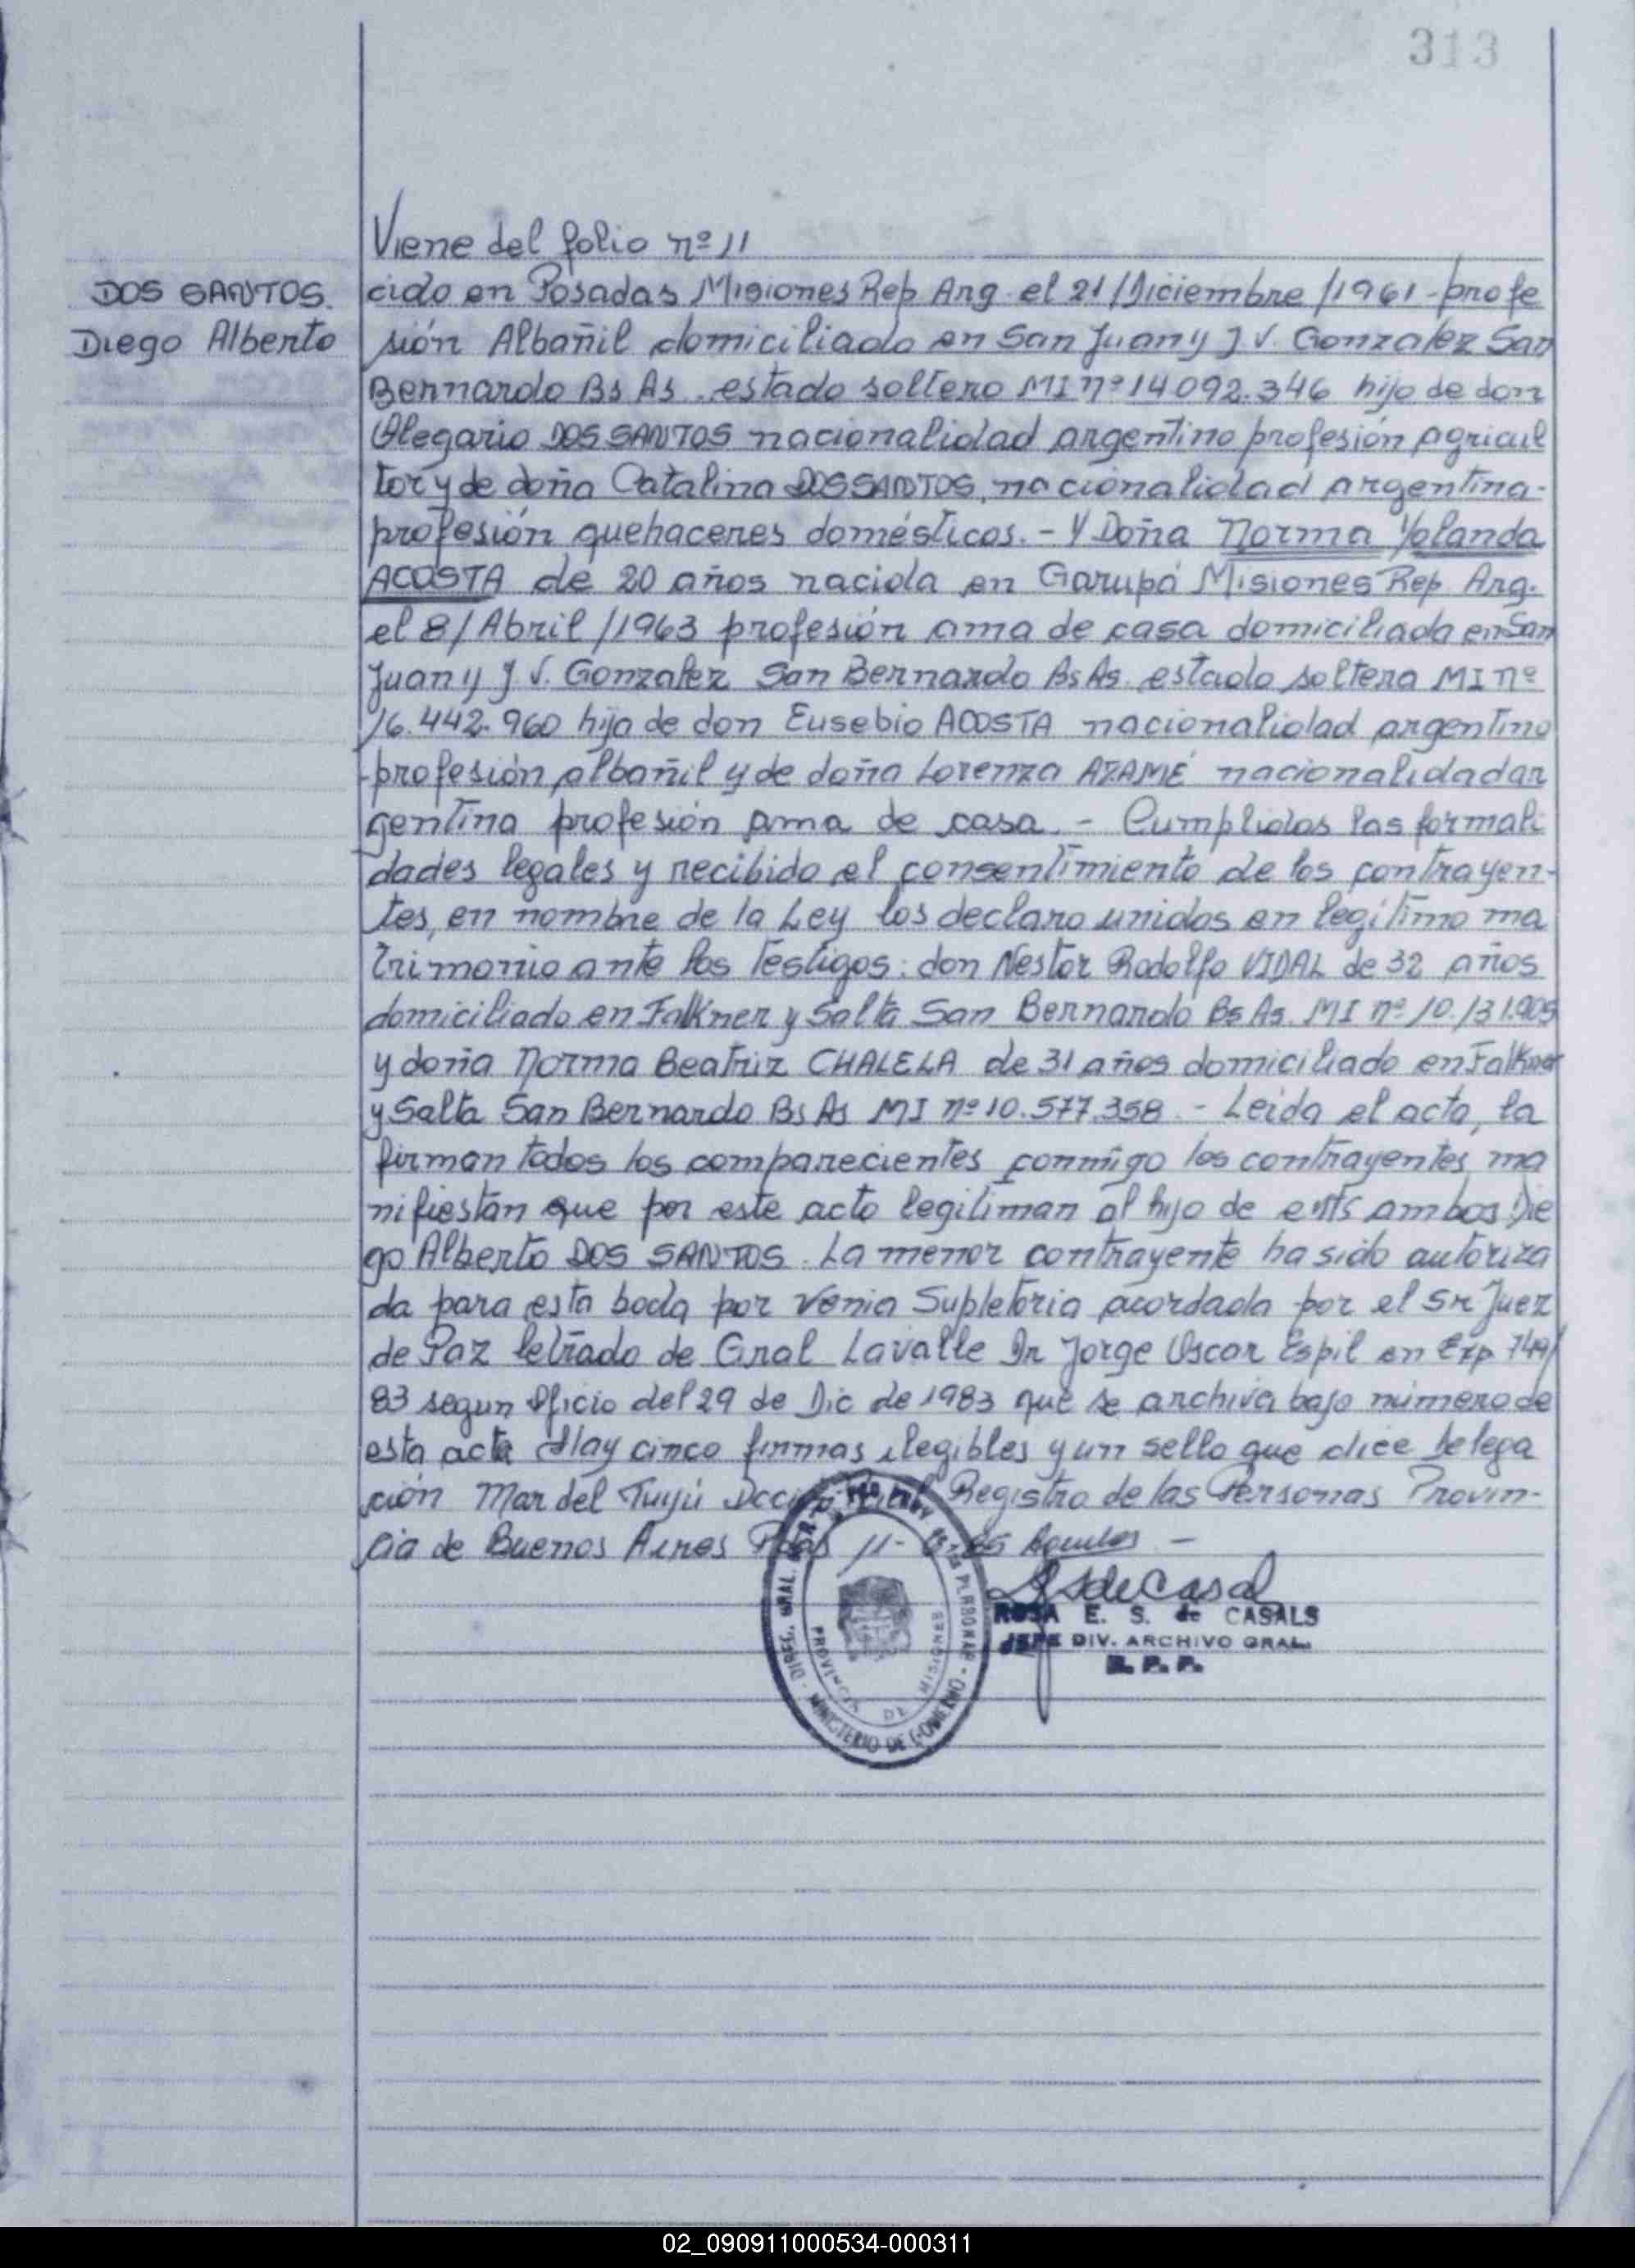 313
Viene del folio nº 11
DOS SANTOS.
Diego Alberto
cido en Posadas Misiones Rep Arg. el 21/Diciembre/1961-profe
sión Albañil domiciliado en San Juan y J V. Gonzalez San
Bernardo Bs As. estado soltero MI nº 14.092.346 hijo de don
Olegario DOS SANTOS nacionalidad argentino profesión agricul
tor y de doña Catalina DOS SANTOS, nacionalidad argentina-
profesión quehaceres domésticos. - Y Doña Norma Yolanda
ACOSTA de 20 años nacida en Garupá Misiones Rep Arg.
el 8/Abril/1963 profesión ama de casa domiciliada en San
Juan y J V. Gonzalez San Bernardo Bs As. estado soltera MI nº
16.442.960 hija de don Eusebio ACOSTA nacionalidad argentino
profesión albañil y de doña Lorenza AZAMÉ nacionalidad ar
gentina profesión ama de casa. - Cumplidas las formali
dades legales y recibido el consentimiento de los contrayen-
tes, en nombre de la Ley los declaro unidos en legítimo ma
trimonio ante los testigos: don Nestor Rodolfo VIDAL de 32 años
domiciliado en Falkner y Salta San Bernardo Bs As. MI nº 10.131.905
y doña Norma Beatriz CHALELA de 31 años domiciliado en Falkner
y Salta San Bernardo Bs As MI nº 10.577.358 - Leida el acta, la
firman todos los comparecientes conmigo los contrayentes ma
nifiestan que por este acto legitiman al hijo de ambos Die
go Alberto DOS SANTOS. La menor contrayente ha sido autoriza
da para esta boda por Venia Supletoria acordada por el Sr Juez
de Paz letrado de Gral Lavalle Dr Jorge Oscar Espil en Exp 749/
83 segun Oficio del 29 de Dic de 1983 que se archiva bajo número de
esta acta Hay cinco firmas ilegibles y un sello que dice Delega
ción Mar del Tuyú Registro de las Personas Provin-
cia de Buenos Aires 11-
ROSA E. S. de CASALS
JEFE DIV. ARCHIVO GRAL.
R. P. P.
PROVINCIA DE MISIONES
MINISTERIO DE GOBIERNO
02_090911000534-000311